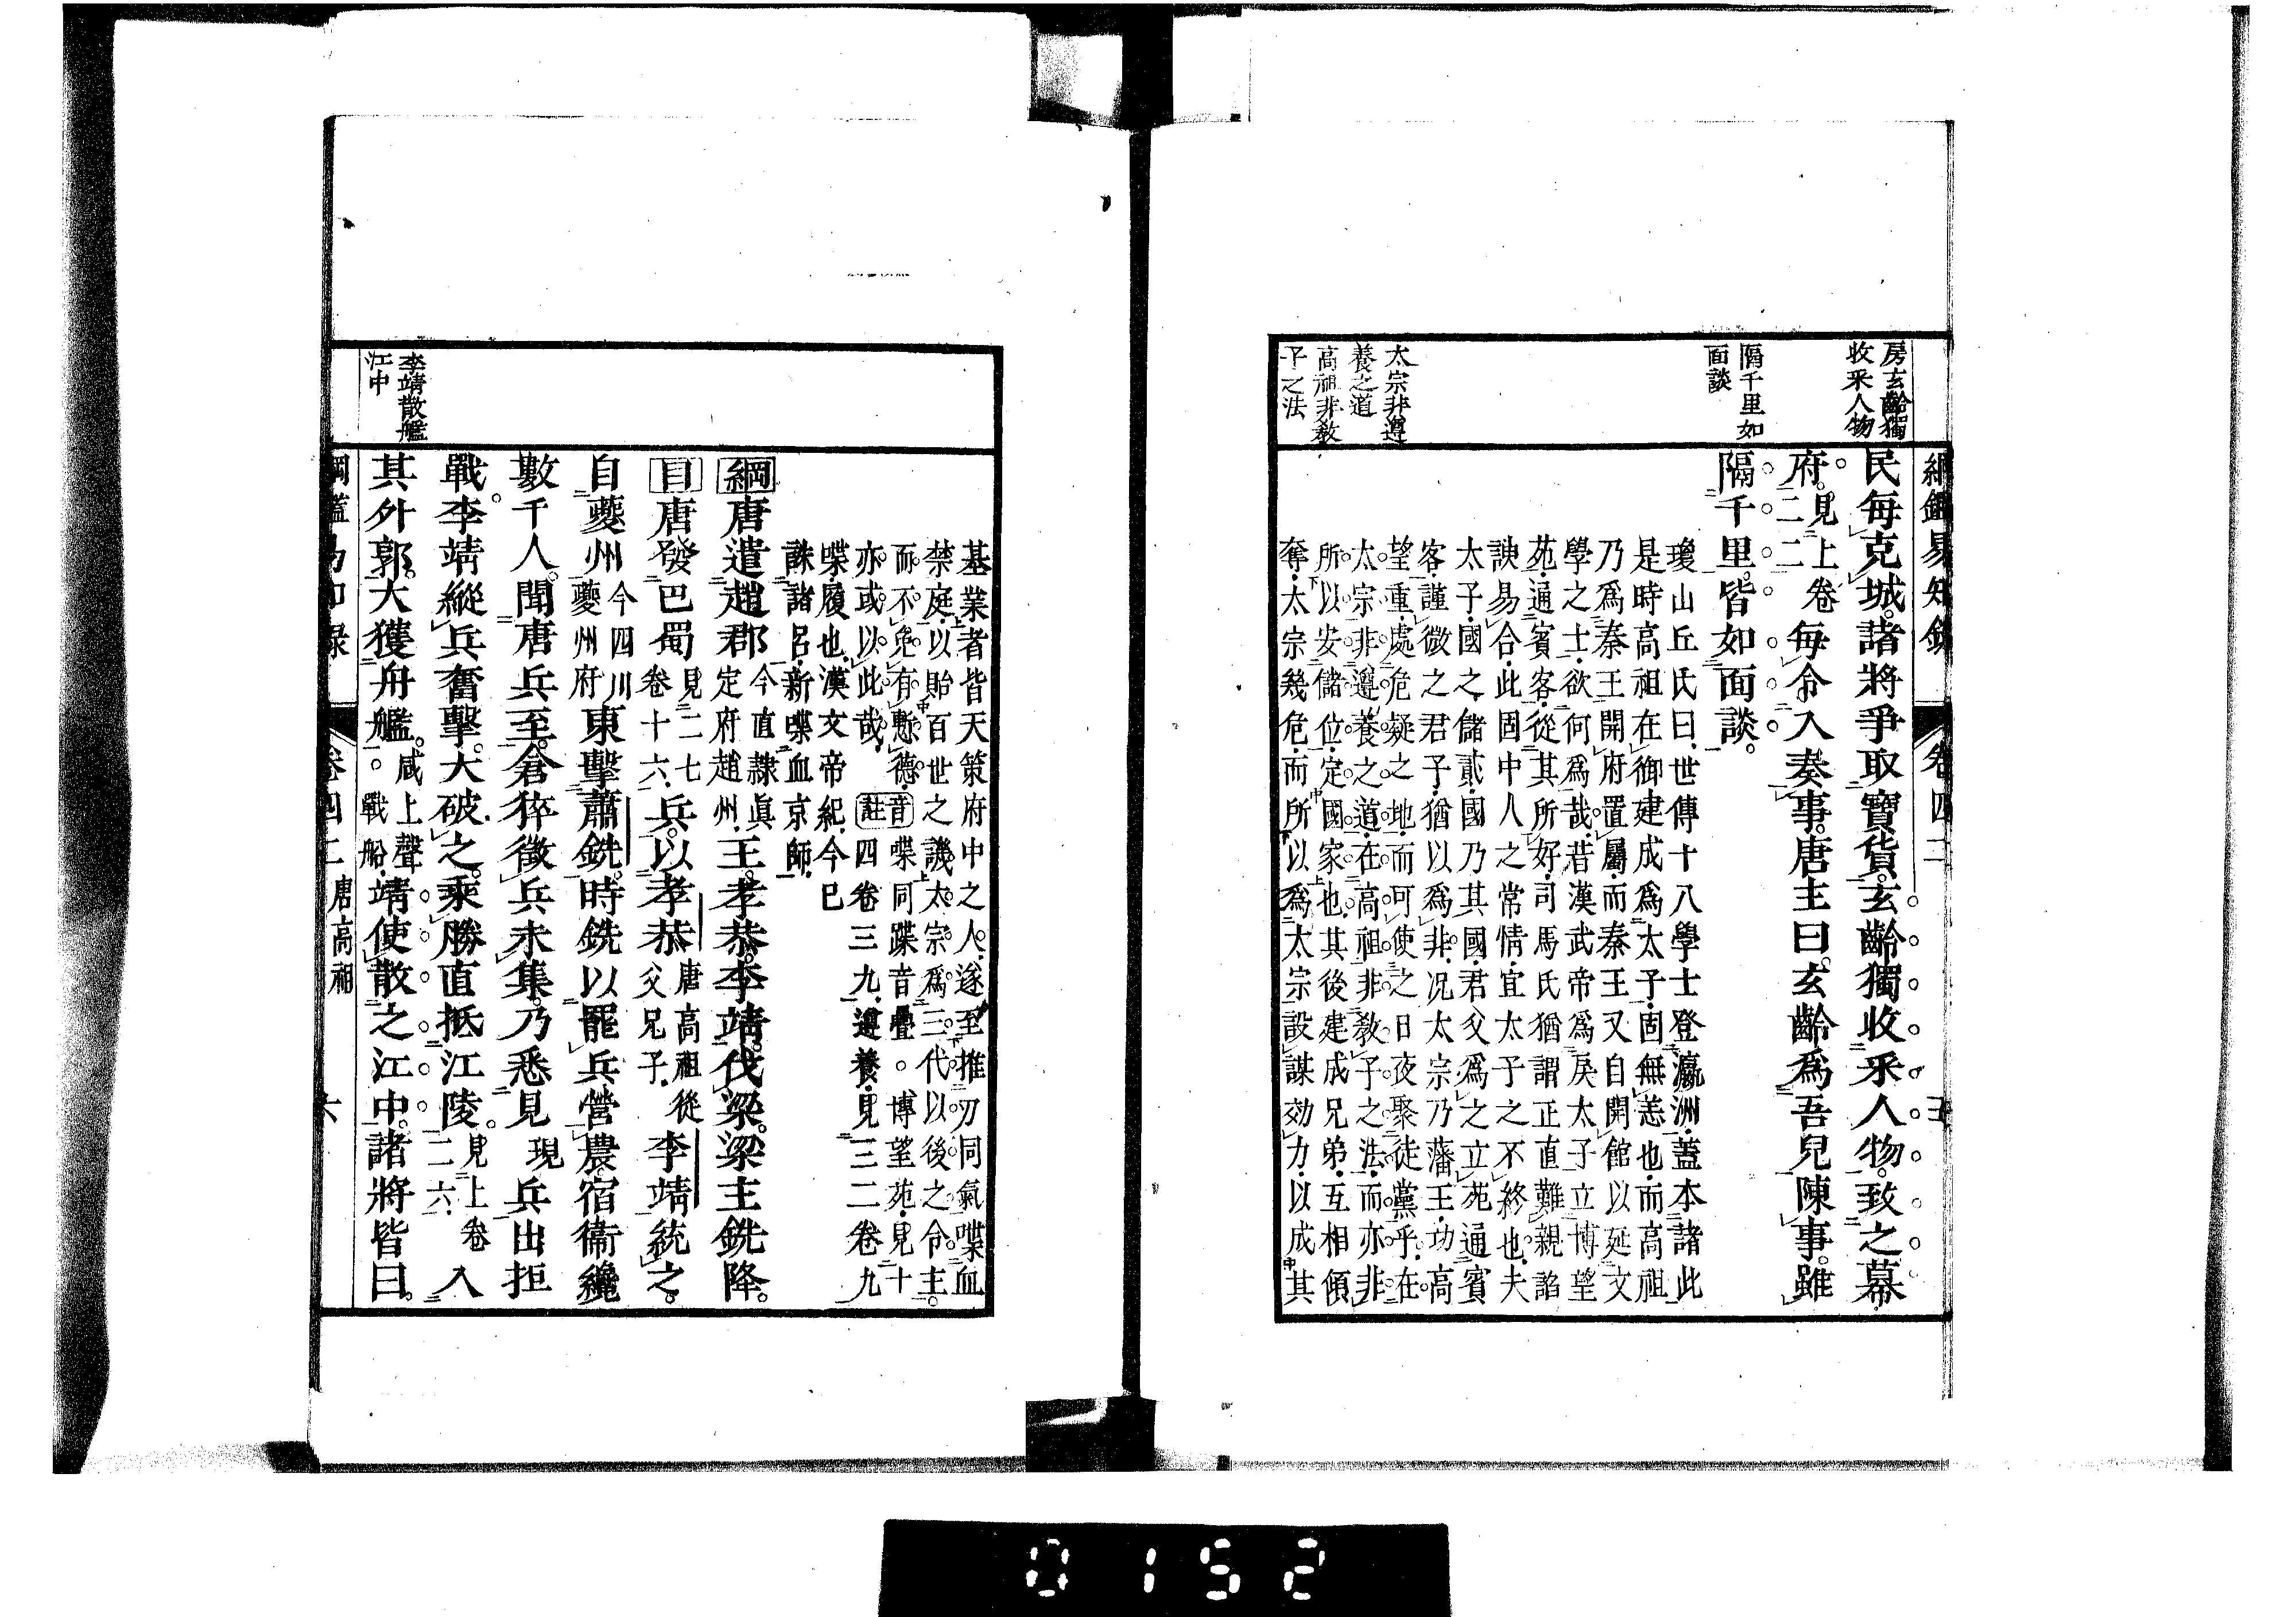 綱鑑易知錄 卷四二
房玄齡獨
收釆人物
隔千里如
面談
太宗非遵
養之道
高祖非敎
子之法
民每克城。諸將爭取寶貨。玄齡獨收釆人物。致之幕
府。見上卷二二每令入奏事。唐主曰。玄齡爲吾兒陳事。雖
隔千里。皆如面談。
瓊山丘氏曰、世傳十八學士登瀛洲、蓋本諸此
是時高祖在御建成爲太子、固無恙也、而高祖
乃爲秦王開府置屬、而秦王又自開館以延文
學之士、欲何爲哉、昔漢武帝爲戾太子立博望
苑、通賓客、從其所好、司馬氏猶謂正直難親諂
諛易合、此固中人之常情、宜太子之不終也、夫
太子、國之儲貳、國乃其國、君父爲之立苑通賓
客、謹微之君子、猶以爲非、况太宗乃藩王、功高
望重、處危疑之地、而可使之日夜聚徒黨乎、在
太宗非遵養之道、在高祖非敎子之法、而亦非
所以安儲位、定國家也、其後建成兄弟、互相傾
奪、太宗幾危、而所以爲太宗設謀効力、以成其
基業者皆天策府中之人、遂至推刃同氣喋血
禁庭、以貽百世之譏、太宗爲三代以後之令主
而不免有慙德、音喋同蹀音疊。博望苑、見十
亦或以此哉、註四卷三九、遵養、見三二卷九
喋、履也、漢文帝紀、今巳
誅諸呂、新喋血京師、
綱唐遣趙郡今直隸眞定府趙州、王孝恭。李靖。伐梁。梁主銑降。
目唐發巴蜀見二七卷十六、兵。以孝恭唐高祖從父兄子、李靖統之。
自夔州今四川夔州府東擊蕭銑。時銑以罷兵營農。宿衞纔
數千人。聞唐兵至。倉猝徵兵未集。乃悉見現兵出拒
戰。李靖縱兵奮擊。大破之。乘勝直抵江陵。見上卷二六、入
其外郭。大獲舟艦。咸上聲戰船、靖使散之江中。諸將皆曰。
李靖散艦
江中
綱鑑易知錄 卷四二 唐高祖 六